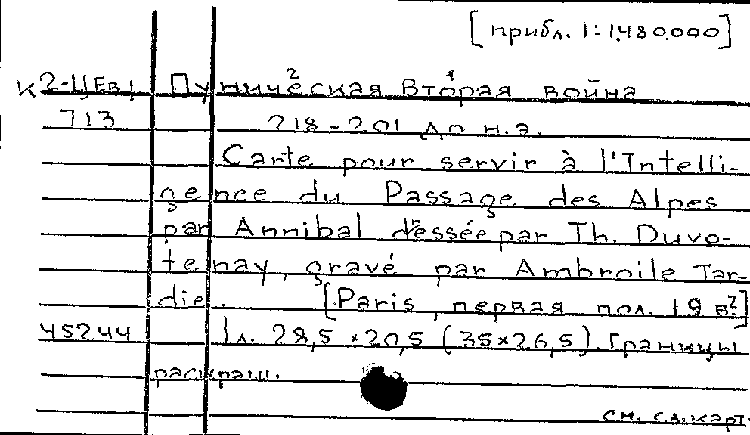 [прибл. 1:1480.000]
К 2-ЦЕв/ Пуническая вторая война
713 218-201 до н.э.
Carte pour servir à l'Intelli-
gence du Passage des Alpes
par Annibal dessée par Th. Duvo-
tenay, gravé par Ambroile Tar-
die. [Paris, первая пол. 19 в?]
45244 1 л. 28,5 × 20,5 (35×26,5). Границы
раскраш.
см. сл. карт.